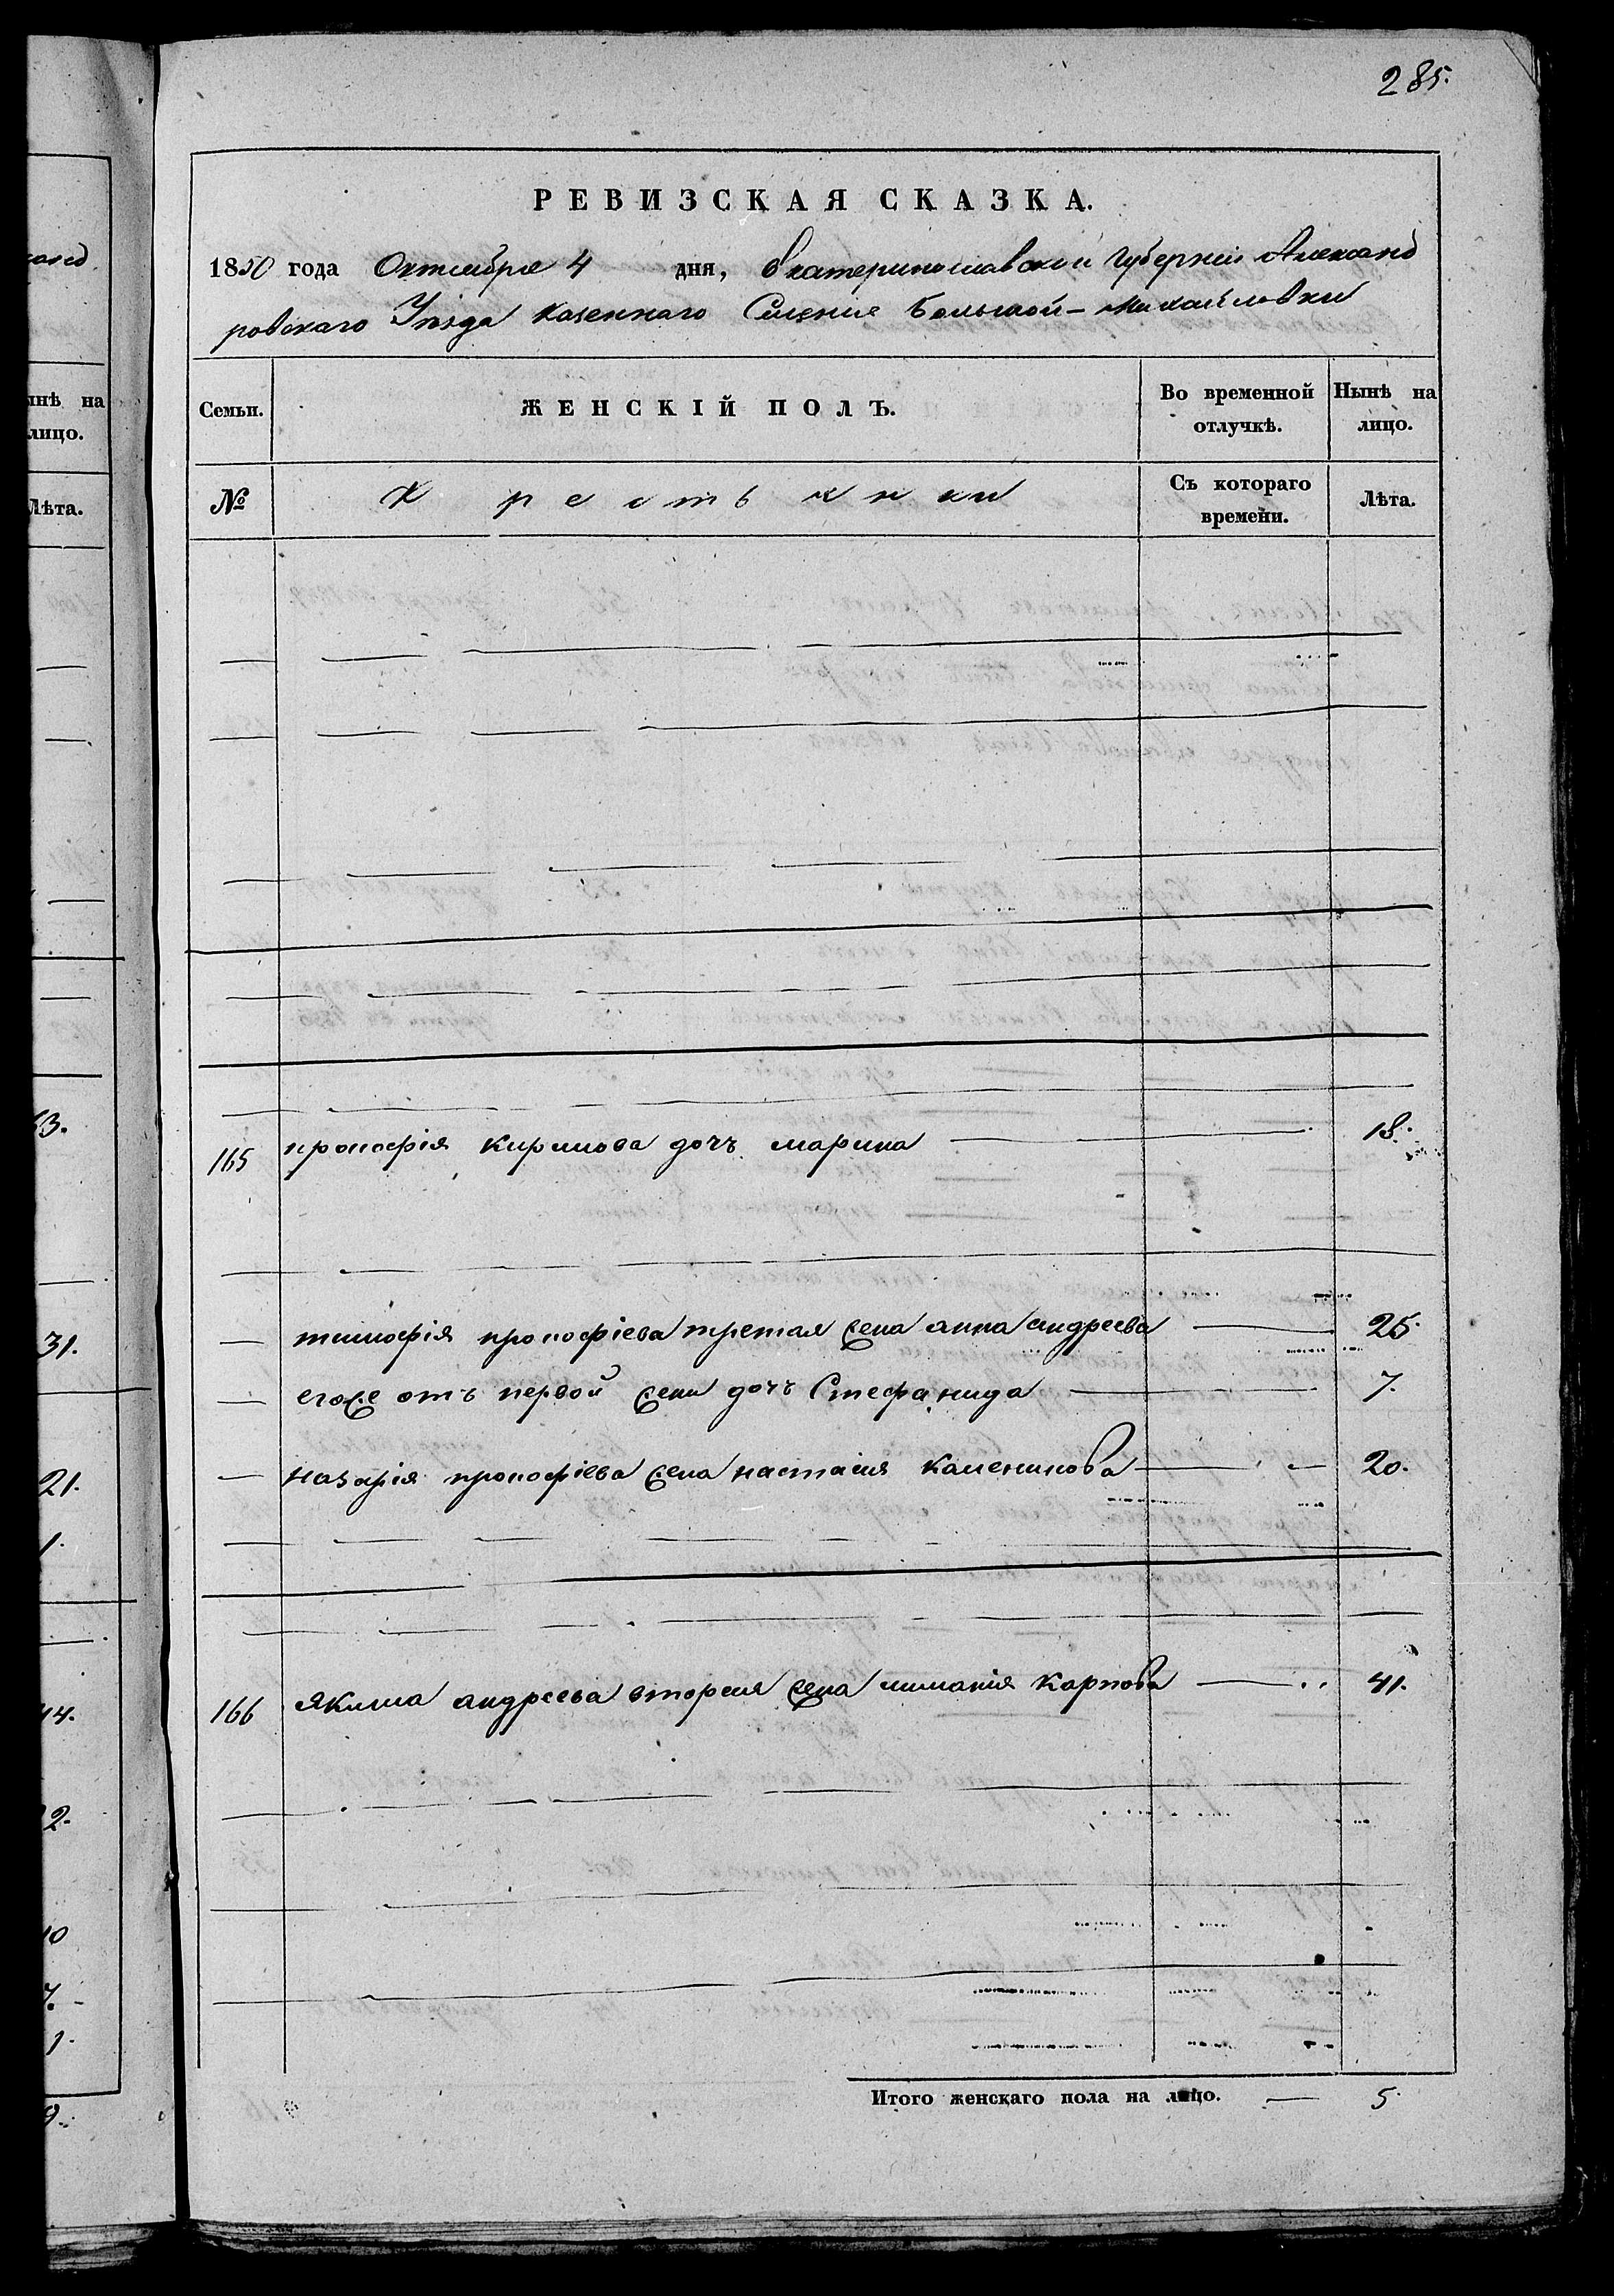 285.
РЕВИЗСКАЯ СКАЗКА.
1850 года Октября 4 дня, Екатеринославской Губерніи Александ
ровскаго Уѣзда казеннаго Селенія Большой-Михайловки
Семьи. ЖЕНСКІЙ ПОЛЪ. Во временной отлучкѣ. Нынѣ на лицо.
№ Крестьянки Съ котораго времени. Лѣта.
165 прокофія кирилова дочь марина 18.
тимофія прокофіева третая жена анна андреева 25.
егоже отъ первой жени дочь Стефанида 7.
назарія прокофіева жена настасия 20.
166 якима андреева вторая жена карпова 41.
Итого женскаго пола на лицо. — 5.
ынѣ на
лицо.
Лѣта.
31.
21.
1.